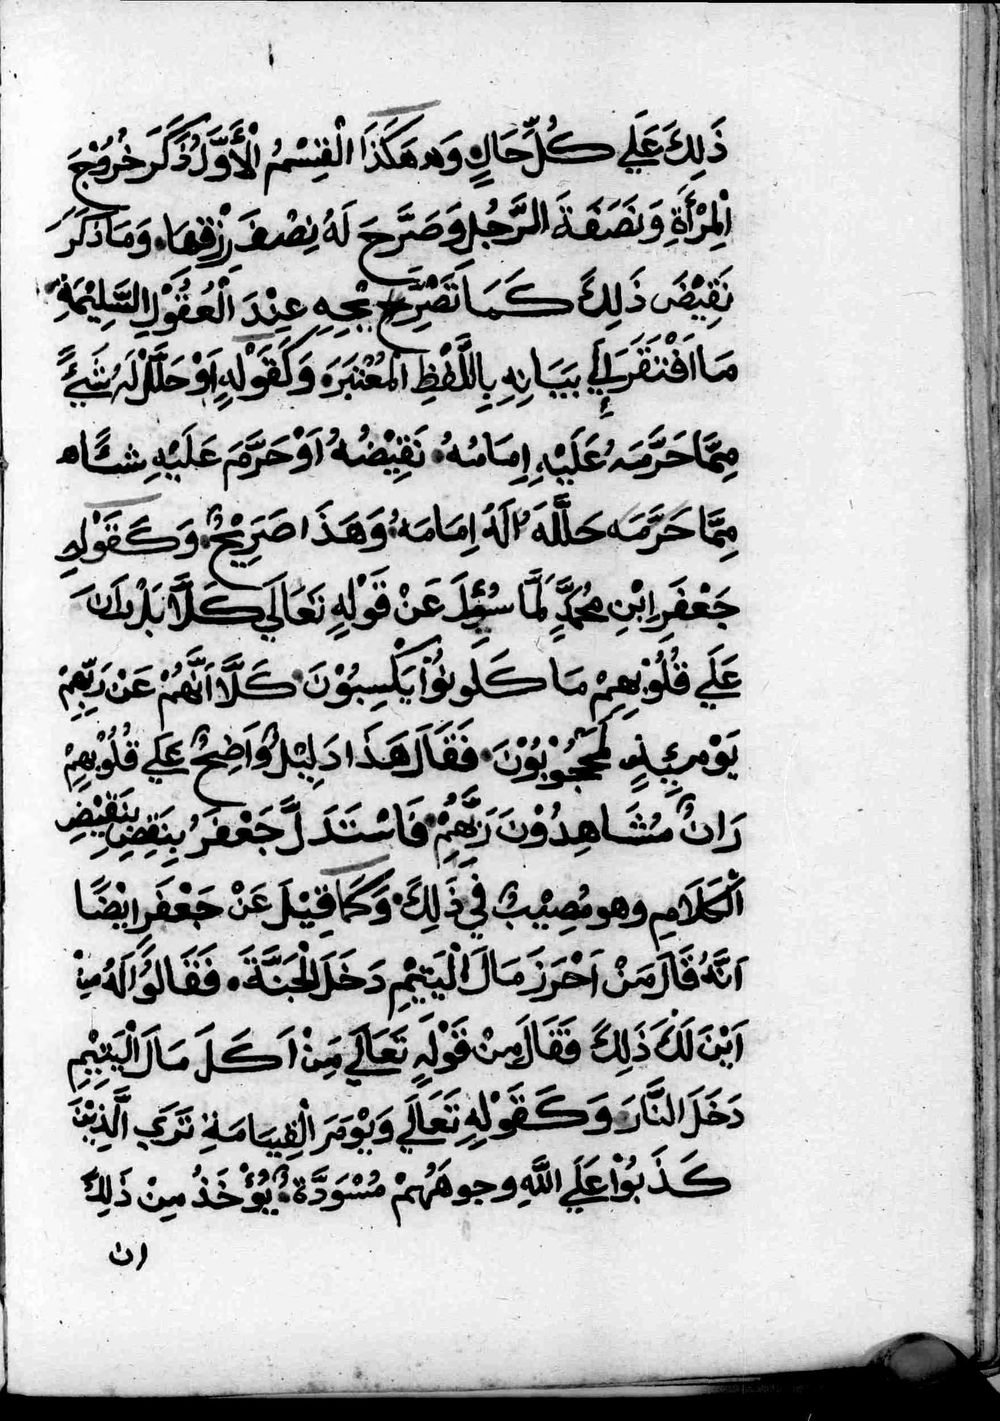 ذَلِكَ عَلَي كُلِّ حَالٍ وَهَكَذَا الْقِسْمُ الْأَوَّلُ ذَكَرَ خُرُوْجَ
الْمِرْأَةِ وَنَصَفَةَ الرَّجُلِ وَصَرَّحَ لَهُ نِصْفَ رِزْقِهَا. وَمَا ذَكَرَ
نَقِيْضَ ذَلِكَ كَمَا تَصْرِيْحِهِ عِنْدَ الْعُقُوْلِ السَّلِيْمَةِ
مَا افْتَقَرَ إِلَي بَيَانِهِ بِاللَّفْظِ الْمُعْتَبَرَ. وَكَقَوْلِهِ اَوْ حَلَّلَ لَهُ شَيْءً
مِمَّا حَرَّمَهُ عَلَيْهِ اِمَامُهُ. نَقِيْضُهُ اَوْ حَرَّمَ عَلَيْهِ
مِمَّا حَرَّمَه حَلَّلَهُ لَهُ اِمَامَهُ. وَهَذَا صَرِيْحٌ. وَكَقَوْلِهِ
جَعْفَرِ ابْنِ مُحَمَّدٍ لَمَّا سُئِلَ عَنْ قَوْلِهِ تَعَالَي كَلَّا بَلْ رَانَ
عَلَي قُلُوْبِهِمْ مَا كَانُوْا يَكْسِبُوْنَ. كَلَّا اَنَّهُمْ عَنْ رَبِّهِمْ
يَوْمَئِذٍ لَمَحْجُوْبُوْنَ. فَقَالَ هَذَا دَلِيْلٌ وَاَضِحٌ عَلَي قُلُوْبِهِمْ
رَانٌ مُشَاهِدُوْنَ رَبَّهُمْ. فَاسْتَدَلَّ جَعْفَرُ بِنَقِضِ بِنَقِيْضِ
الْكَلَامِ وهو مُصِيْبٌ فِي ذَلِكَ. وَكَمَا قِيْلَ عَنْ جَعْفَرِ ايْضًا
اَنَّهُ قَالَ مَنْ اَحْرَزَ مَالَ الْيَتِيْمِ دَخَلَ الْجَنَّةَ. فَقَالُوْا لَهُ مِنْ
اَيْنَ لَكَ ذَلِكَ فَقَالَ مِنْ قَوْلِهِ تَعَالَي مَنْ اَكَلَ مَالَ الْيَتِيْمِ
دَخَلَ النَّارَ. وَكَقَوْلِهِ تَعَالَي وَيَوْمَ الْقِيَامَةِ تَرَي الَّذِيْنَ
كَذَبُوْا عَلَي اللَّهِ وجوهَهُمْ مُسْوَدَّةٌ. يُؤْخَذُ مِنْ ذَلِكَ
ان